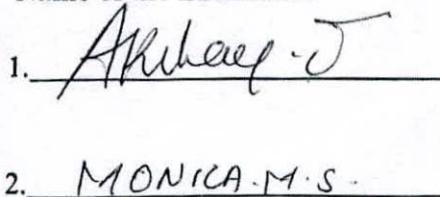 1. Akshay-J
2. MONICA.M.S.